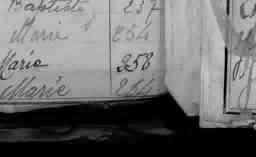 Baptiste 237
Marie 254
Marie 258
Marie 254